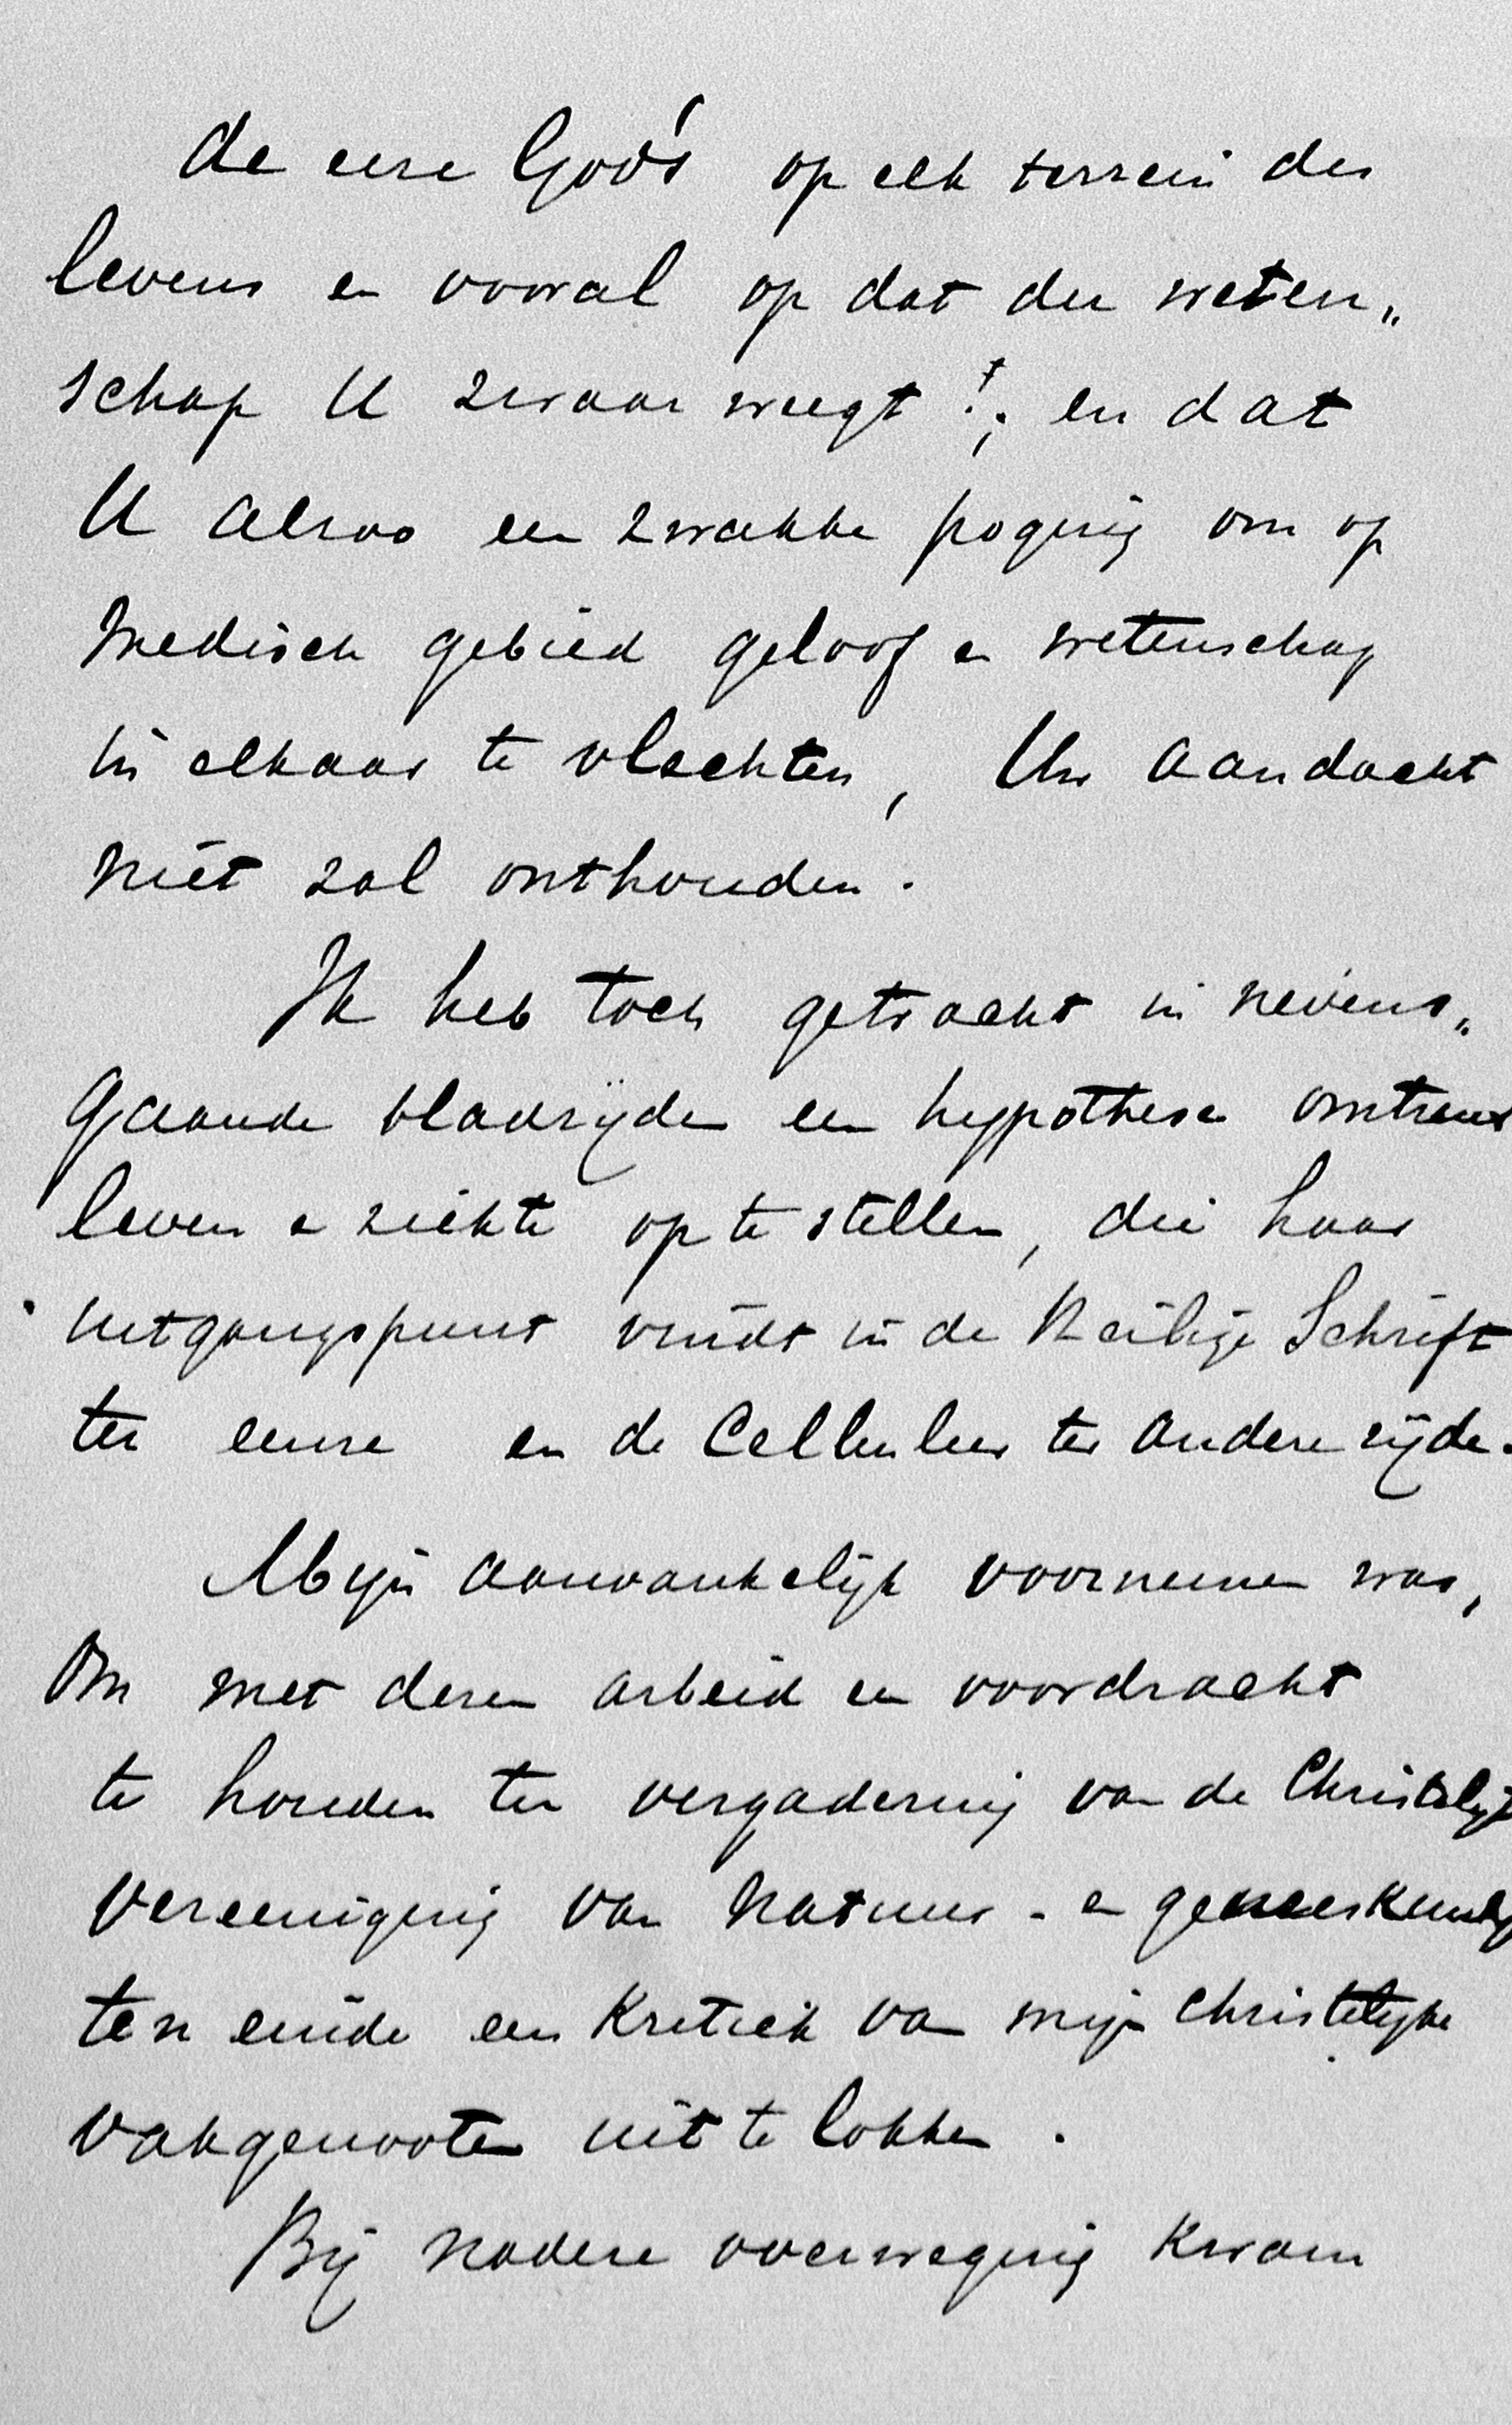 de eere God's op elk terrein des
levens en vooral op dat der weten„
schap U zwaar weegt!; en dat
U alzoo een zwakke poging om op
medisch gebied geloof en wetenschap
in elkaar te vlechten, Uw aandacht
niet zal onthouden.
Ik heb toch getracht in nevens„
gaande bladzijden een hypothese omtrent
leven en ziekte op te stellen, die haar
uitgangspunt vindt in de Heilige Schrift
ter eenre en de Cellenleer ter andere zijde.
Mijn aanvankelijk voornemen was,
om met dezen arbeid een voordracht
te houden ter vergadering van de Christelijke
Vereeniging van Natuur- en geneeskundigen
ten einde een Kritiek van mijn Christelijke
vakgenooten uit te lokken.
Bij nadere overweging kwam